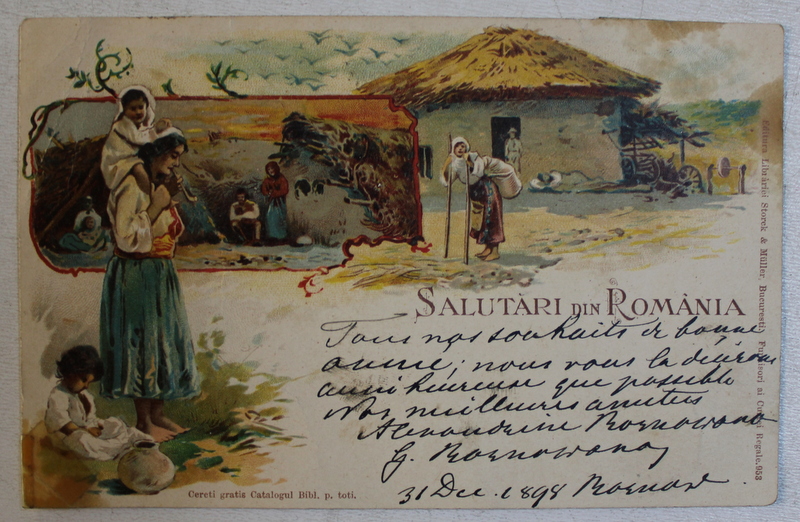 SALUTĂRI DIN ROMÂNIA
Tous nos souhaits de bonne
année; nous vous la désirons
aussi heureuse que possible
Nos meilleures amitiés
Alexandrine Rosnovano
G. Rosnovano
31 Dec. 1898
Cereti gratis Catalogul Bibl. p. toti.
Editura Librăriei Storck & Müller, Bucuresti, Furnisori ai Curtei Regale. 953